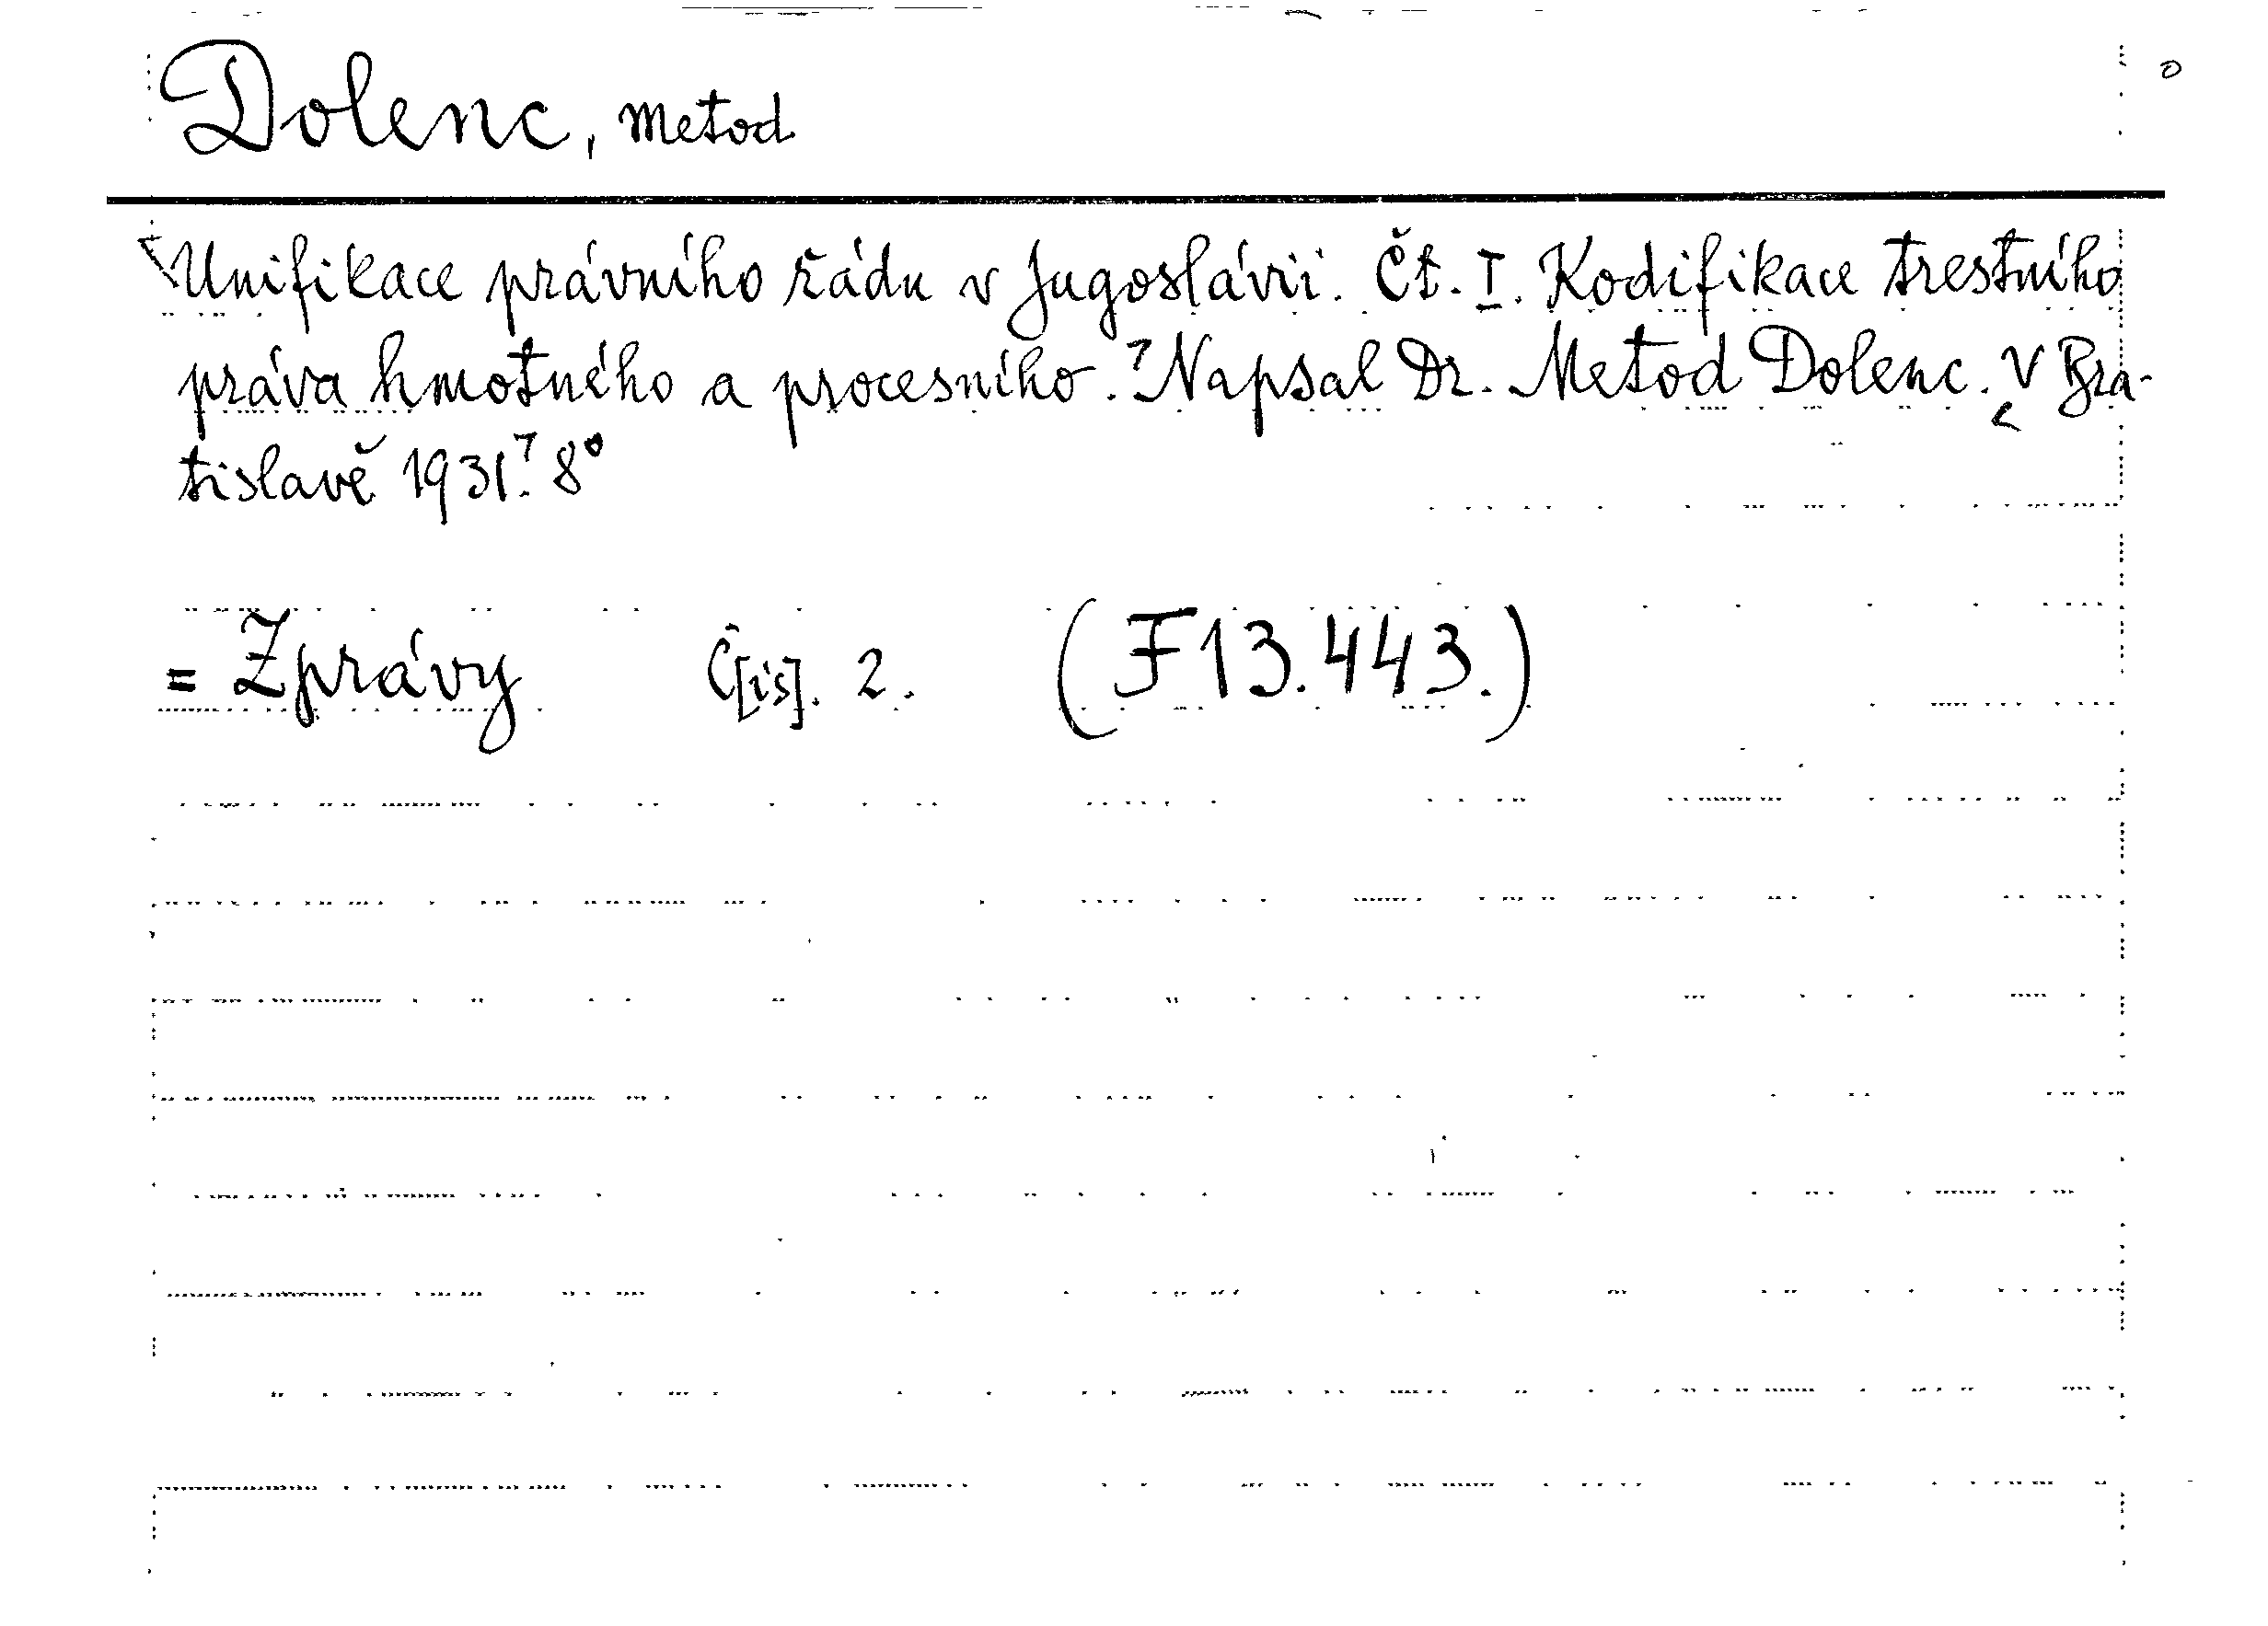 Dolenc, Metod
Unifikace právního řádu v Jugoslávii. Čt. I. Kodifikace trestního
práva hmotného a procesního. Napsal Dr. Metod Dolenc. V Bra-
tislavě 1931. 8°
= Zprávy Č[is]. 2. (F13.443.)